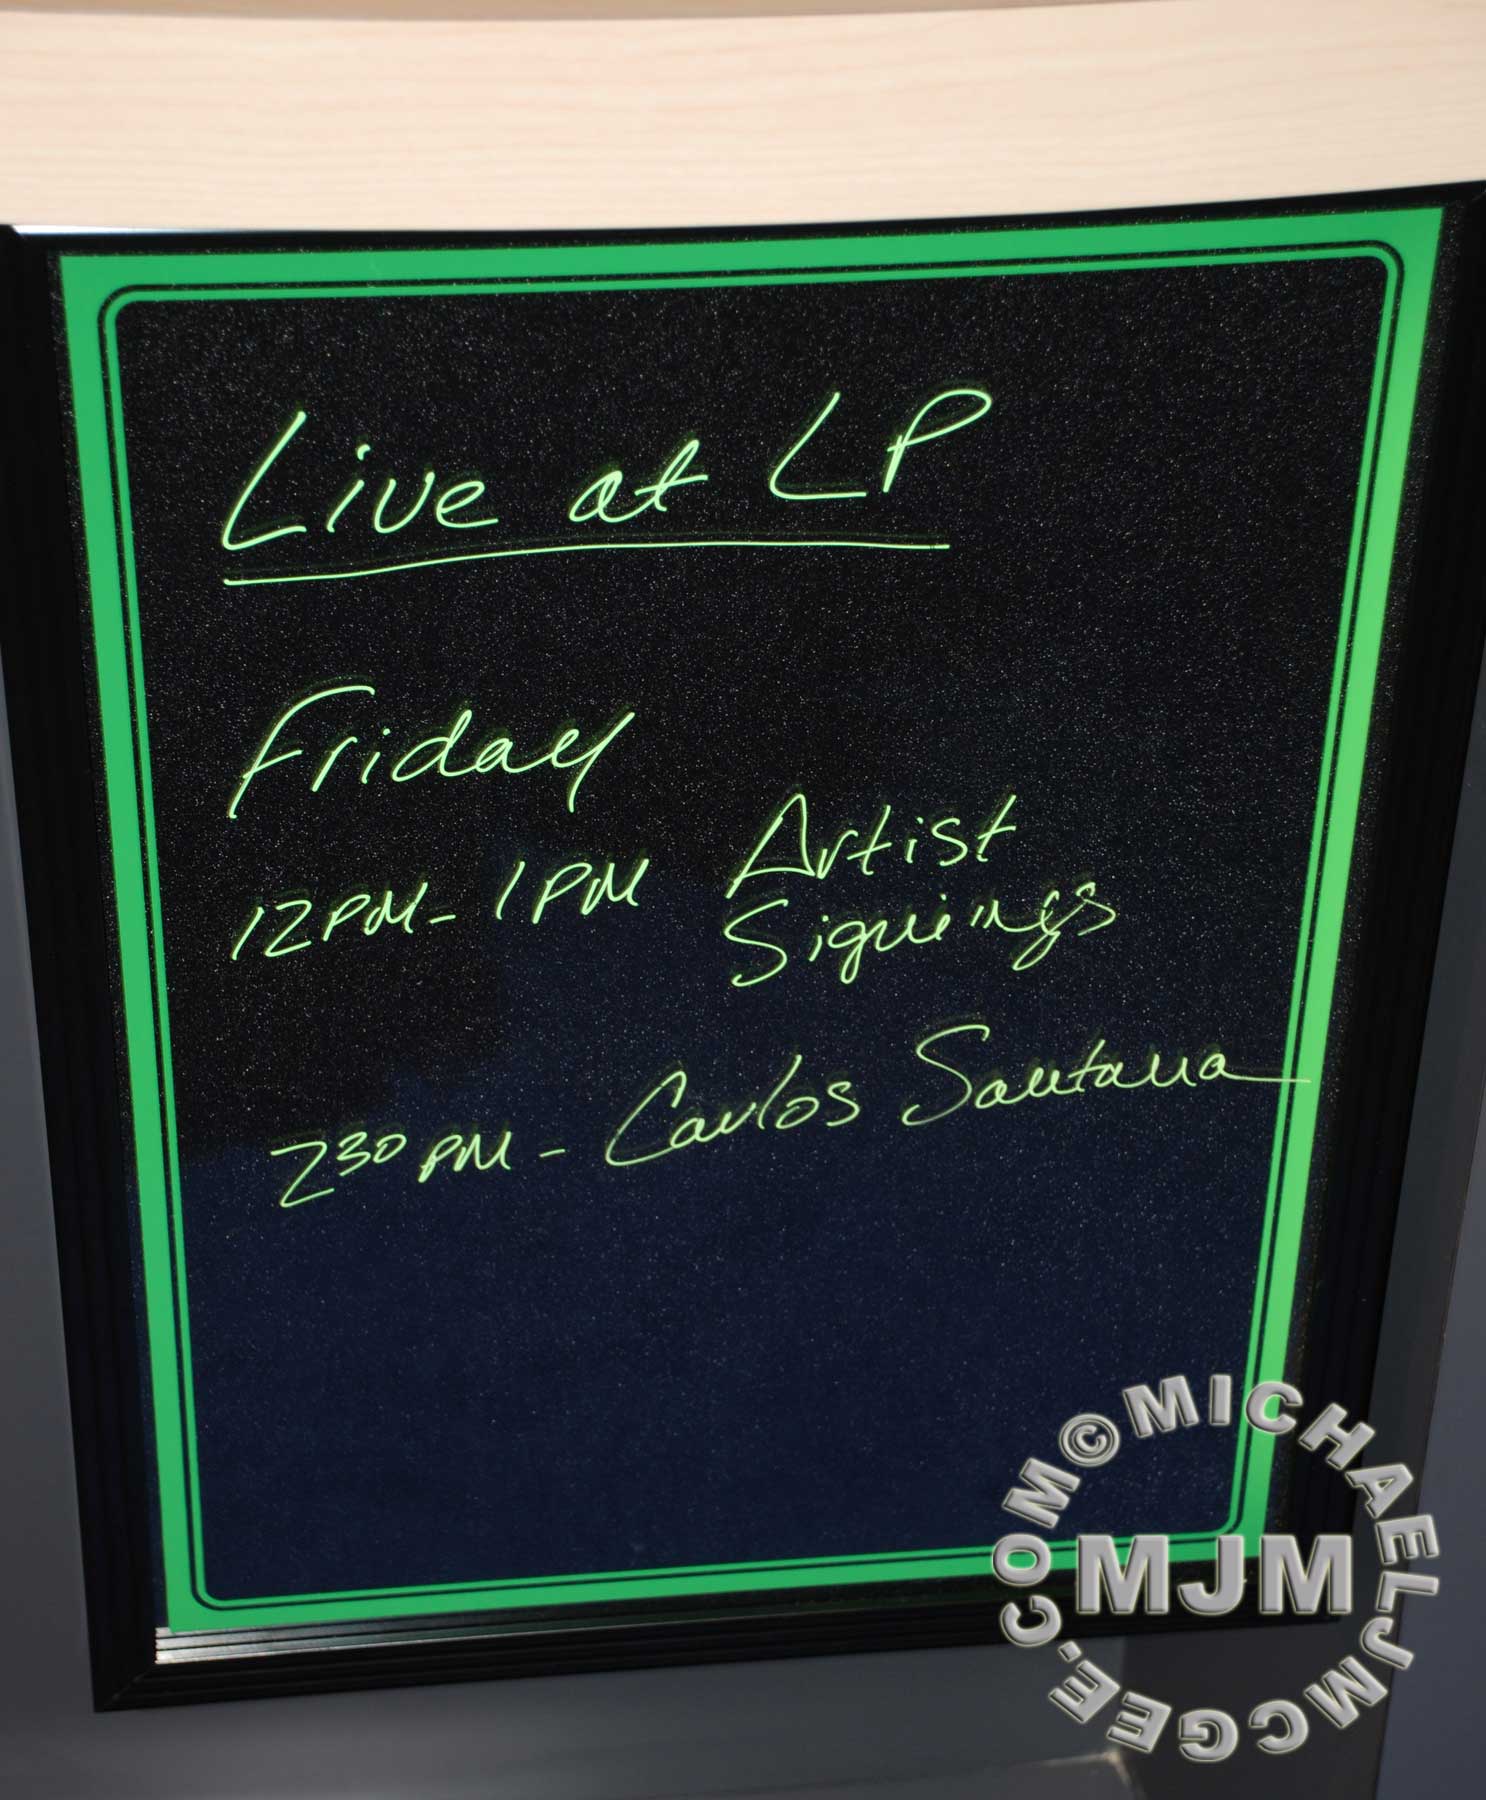 Live at LP
Friday
12PM - 1PM Artist
Signings
230 PM - Carlos Santana
©MICHAELJMCGEE.COM
MJM